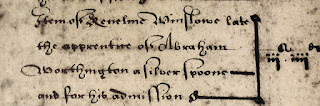 Item of Keneline Winslowe late
the apprentice of Abraham
Worthington a silver spoone
and for his admission
iiijs iiijd